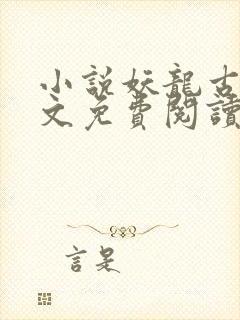 小說妖龍古
文免費閱讀
言是